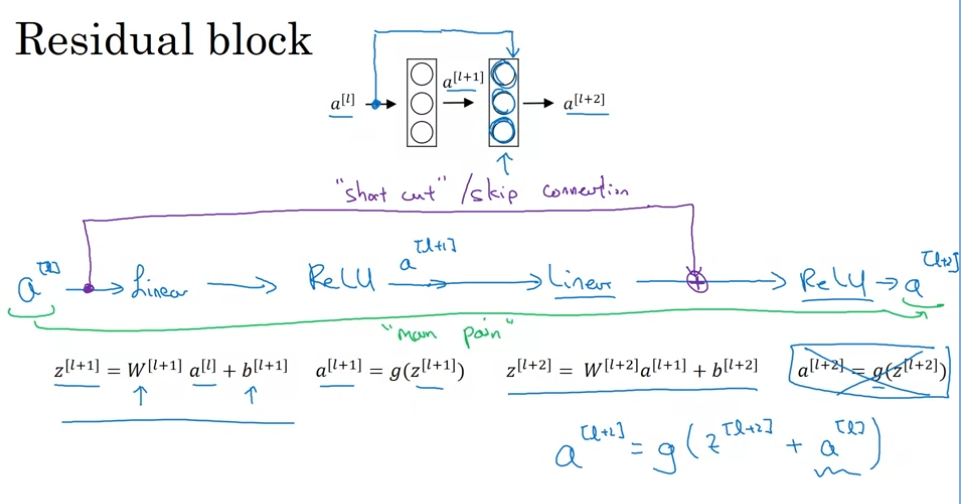 Residual block
a^[l] a^[l+1] a^[l+2]
"short cut" / skip connection
a^[l] → Linear → ReLU a^[l+1] → Linear → ReLU → a^[l+2]
"main path"
z^[l+1] = W^[l+1] a^[l] + b^[l+1] a^[l+1] = g(z^[l+1]) z^[l+2] = W^[l+2]a^[l+1] + b^[l+2] a^[l+2] = g(z^[l+2])
a^[l+2] = g(z^[l+2] + a^[l])